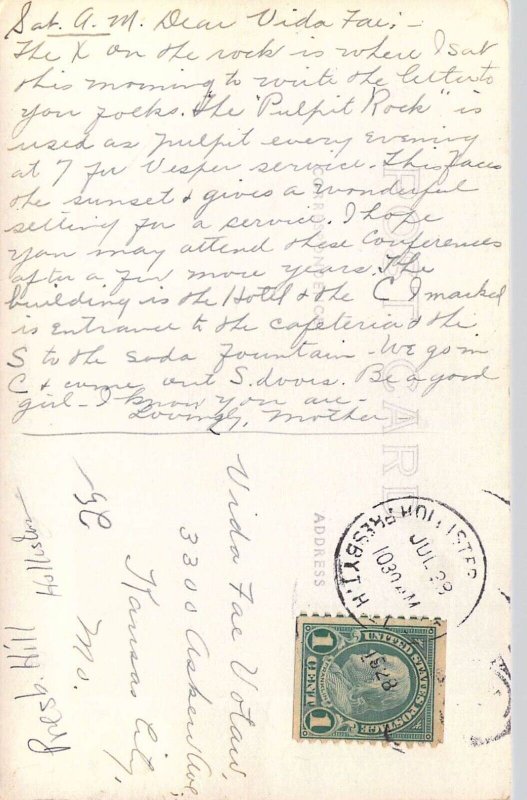 Sat. A.M. Dear Vida Fae; -
The X on the rock is where I sat
this morning to write the letter to
you folks. The "Pulpit Rock" is
used as pulpit every evening
at 7 for Vesper service. This faces
the sunset & gives a wonderful
setting for a service. I hope
you may attend these conferences
after a few more years. The
building is the Hotel & the C I marked
is entrance to the cafeteria & the
S to the soda fountain - We go in
C & come out S. doors. Be a good
girl - I know you are -
Lovingly, Mother
POST CARD
CORRESPONDENCE
ADDRESS
Vida Fae Votaw,
3300 Askew Ave
Kansas City,
Mo.
KC
Presb. Hill
Hollister
HOLLISTER
PRESBYT
JUL 28
1030 AM
UNITED STATES POSTAGE
1 CENT 1